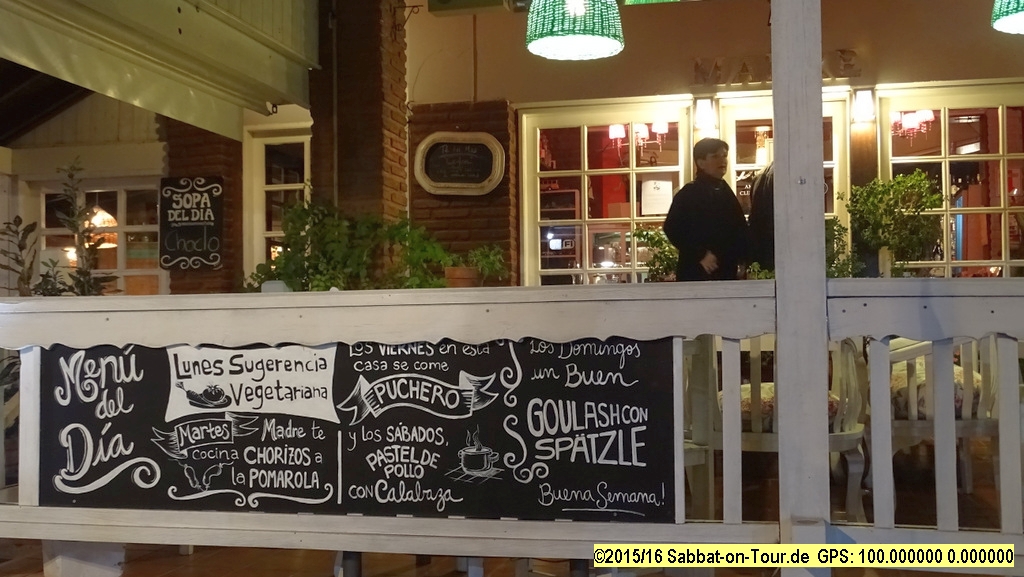 SOPA
DEL DÍA
Choclo
Menú
del
Día
Lunes Sugerencia
Vegetariana
Martes Madre te
cocina CHORIZOS a
la POMAROLA
Los VIERNES en esta
casa se come
PUCHERO
y los SÁBADOS,
PASTEL DE
POLLO
CON Calabaza
Los Domingos
un Buen
GOULASH CON
SPÄTZLE
Buena Semana!
©2015/16 Sabbat-on-Tour.de GPS: 100.000000 0.000000